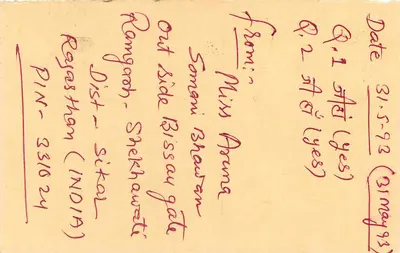 Date 31.5-93 (31 may 93)
Q.1 जी हाँ (yes)
Q.2 जी हाँ (yes)
from:-
Miss Aruna
Somani Bhawan
out side Bissau gate
Ramgarh- Shekhawati
Dist- Sikar
Rajasthan (INDIA)
PIN- 331024